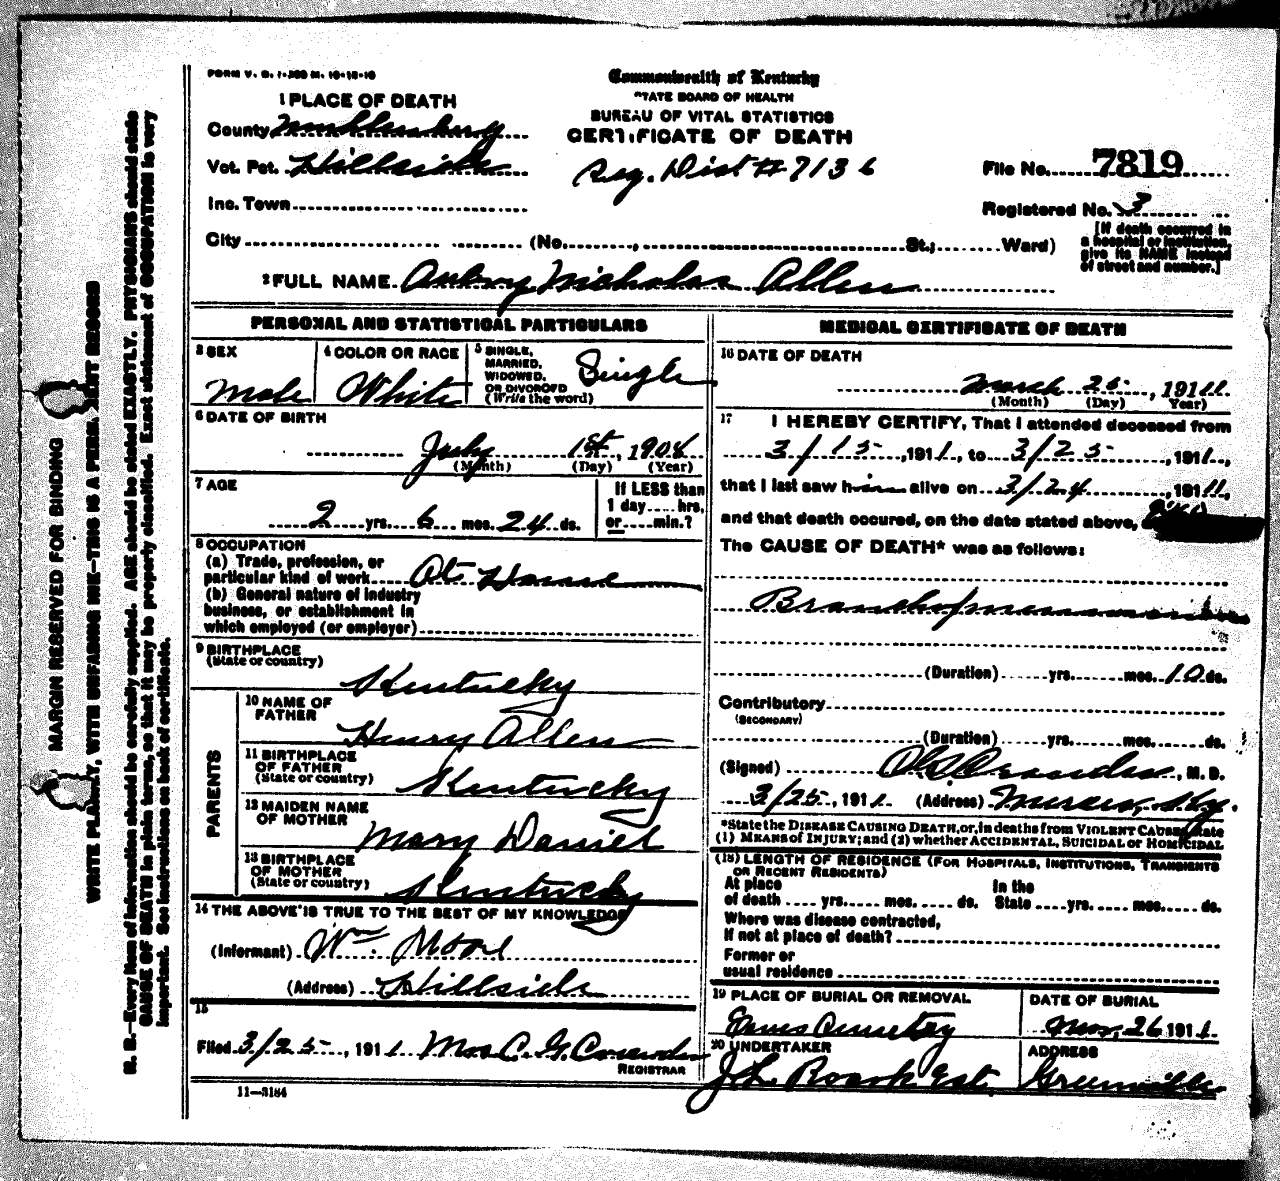 FORM V. S. 1-200 M. 10-18-10
Commonwealth of Kentucky
STATE BOARD OF HEALTH
BUREAU OF VITAL STATISTICS
CERTIFICATE OF DEATH
Reg. Dist # 7136
1 PLACE OF DEATH
County Muhlenburg
Vot. Pct. Hillside
Inc. Town
City (No. , St.; Ward)
File No. 7819
Registered No. 3
[If death occurred in
a hospital or institution,
give its NAME instead
of street and number.]
2 FULL NAME Aubry Nicholas Allen
PERSONAL AND STATISTICAL PARTICULARS
3 SEX
Male
4 COLOR OR RACE
White
5 SINGLE,
MARRIED,
WIDOWED,
OR DIVORCED
(Write the word)
Single
6 DATE OF BIRTH
July 1st, 1908
(Month) (Day) (Year)
7 AGE
2 yrs. 6 mos. 24 ds.
If LESS than
1 day....hrs.
or....min.?
8 OCCUPATION
(a) Trade, profession, or
particular kind of work At Home
(b) General nature of industry
business, or establishment in
which employed (or employer)
9 BIRTHPLACE
(State or country)
Kentucky
PARENTS
10 NAME OF
FATHER
Henry Allen
11 BIRTHPLACE
OF FATHER
(State or country)
Kentucky
12 MAIDEN NAME
OF MOTHER
Mary Daniel
13 BIRTHPLACE
OF MOTHER
(State or country)
Kentucky
14 THE ABOVE IS TRUE TO THE BEST OF MY KNOWLEDGE
(Informant) Wm. Moore
(Address) Hillside
15
Filed 3/25, 1911 Mrs C. G.
REGISTRAR
11-3184
MEDICAL CERTIFICATE OF DEATH
16 DATE OF DEATH
March 25, 1911
(Month) (Day) Year)
17 I HEREBY CERTIFY, That I attended deceased from
3/15, 1911, to 3/25, 1911,
that I last saw him alive on 3/24, 1911,
and that death occured, on the date stated above,
The CAUSE OF DEATH* was as follows:
(Duration) yrs. mos. 10 ds.
Contributory
(SECONDARY)
(Duration) yrs. mos. ds.
(Signed) , M. D.
3/25, 1911 (Address) Mercer, Ky.
*State the DISEASE CAUSING DEATH, or, in deaths from VIOLENT CAUSES, state
(1) MEANS of INJURY; and (2) whether ACCIDENTAL, SUICIDAL or HOMICIDAL
(18) LENGTH OF RESIDENCE (FOR HOSPITALS, INSTITUTIONS, TRANSIENTS
OR RECENT RESIDENTS)
At place
of death .... yrs. .... mos. .... ds.
In the
State .... yrs. .... mos. .... ds.
Where was disease contracted,
If not at place of death?
Former or
usual residence
19 PLACE OF BURIAL OR REMOVAL
Cemetery
DATE OF BURIAL
Mar, 26 1911
20 UNDERTAKER
J. L. Roark Est.
ADDRESS
Greenville
MARGIN RESERVED FOR BINDING
WRITE PLAINLY, WITH UNFADING INK—THIS IS A PERMANENT RECORD
N. B.—Every item of information should be carefully supplied. AGE should be stated EXACTLY. PHYSICIANS should state
CAUSE OF DEATH in plain terms, so that it may be properly classified. Exact statement of OCCUPATION is very
important. See instructions on back of certificate.